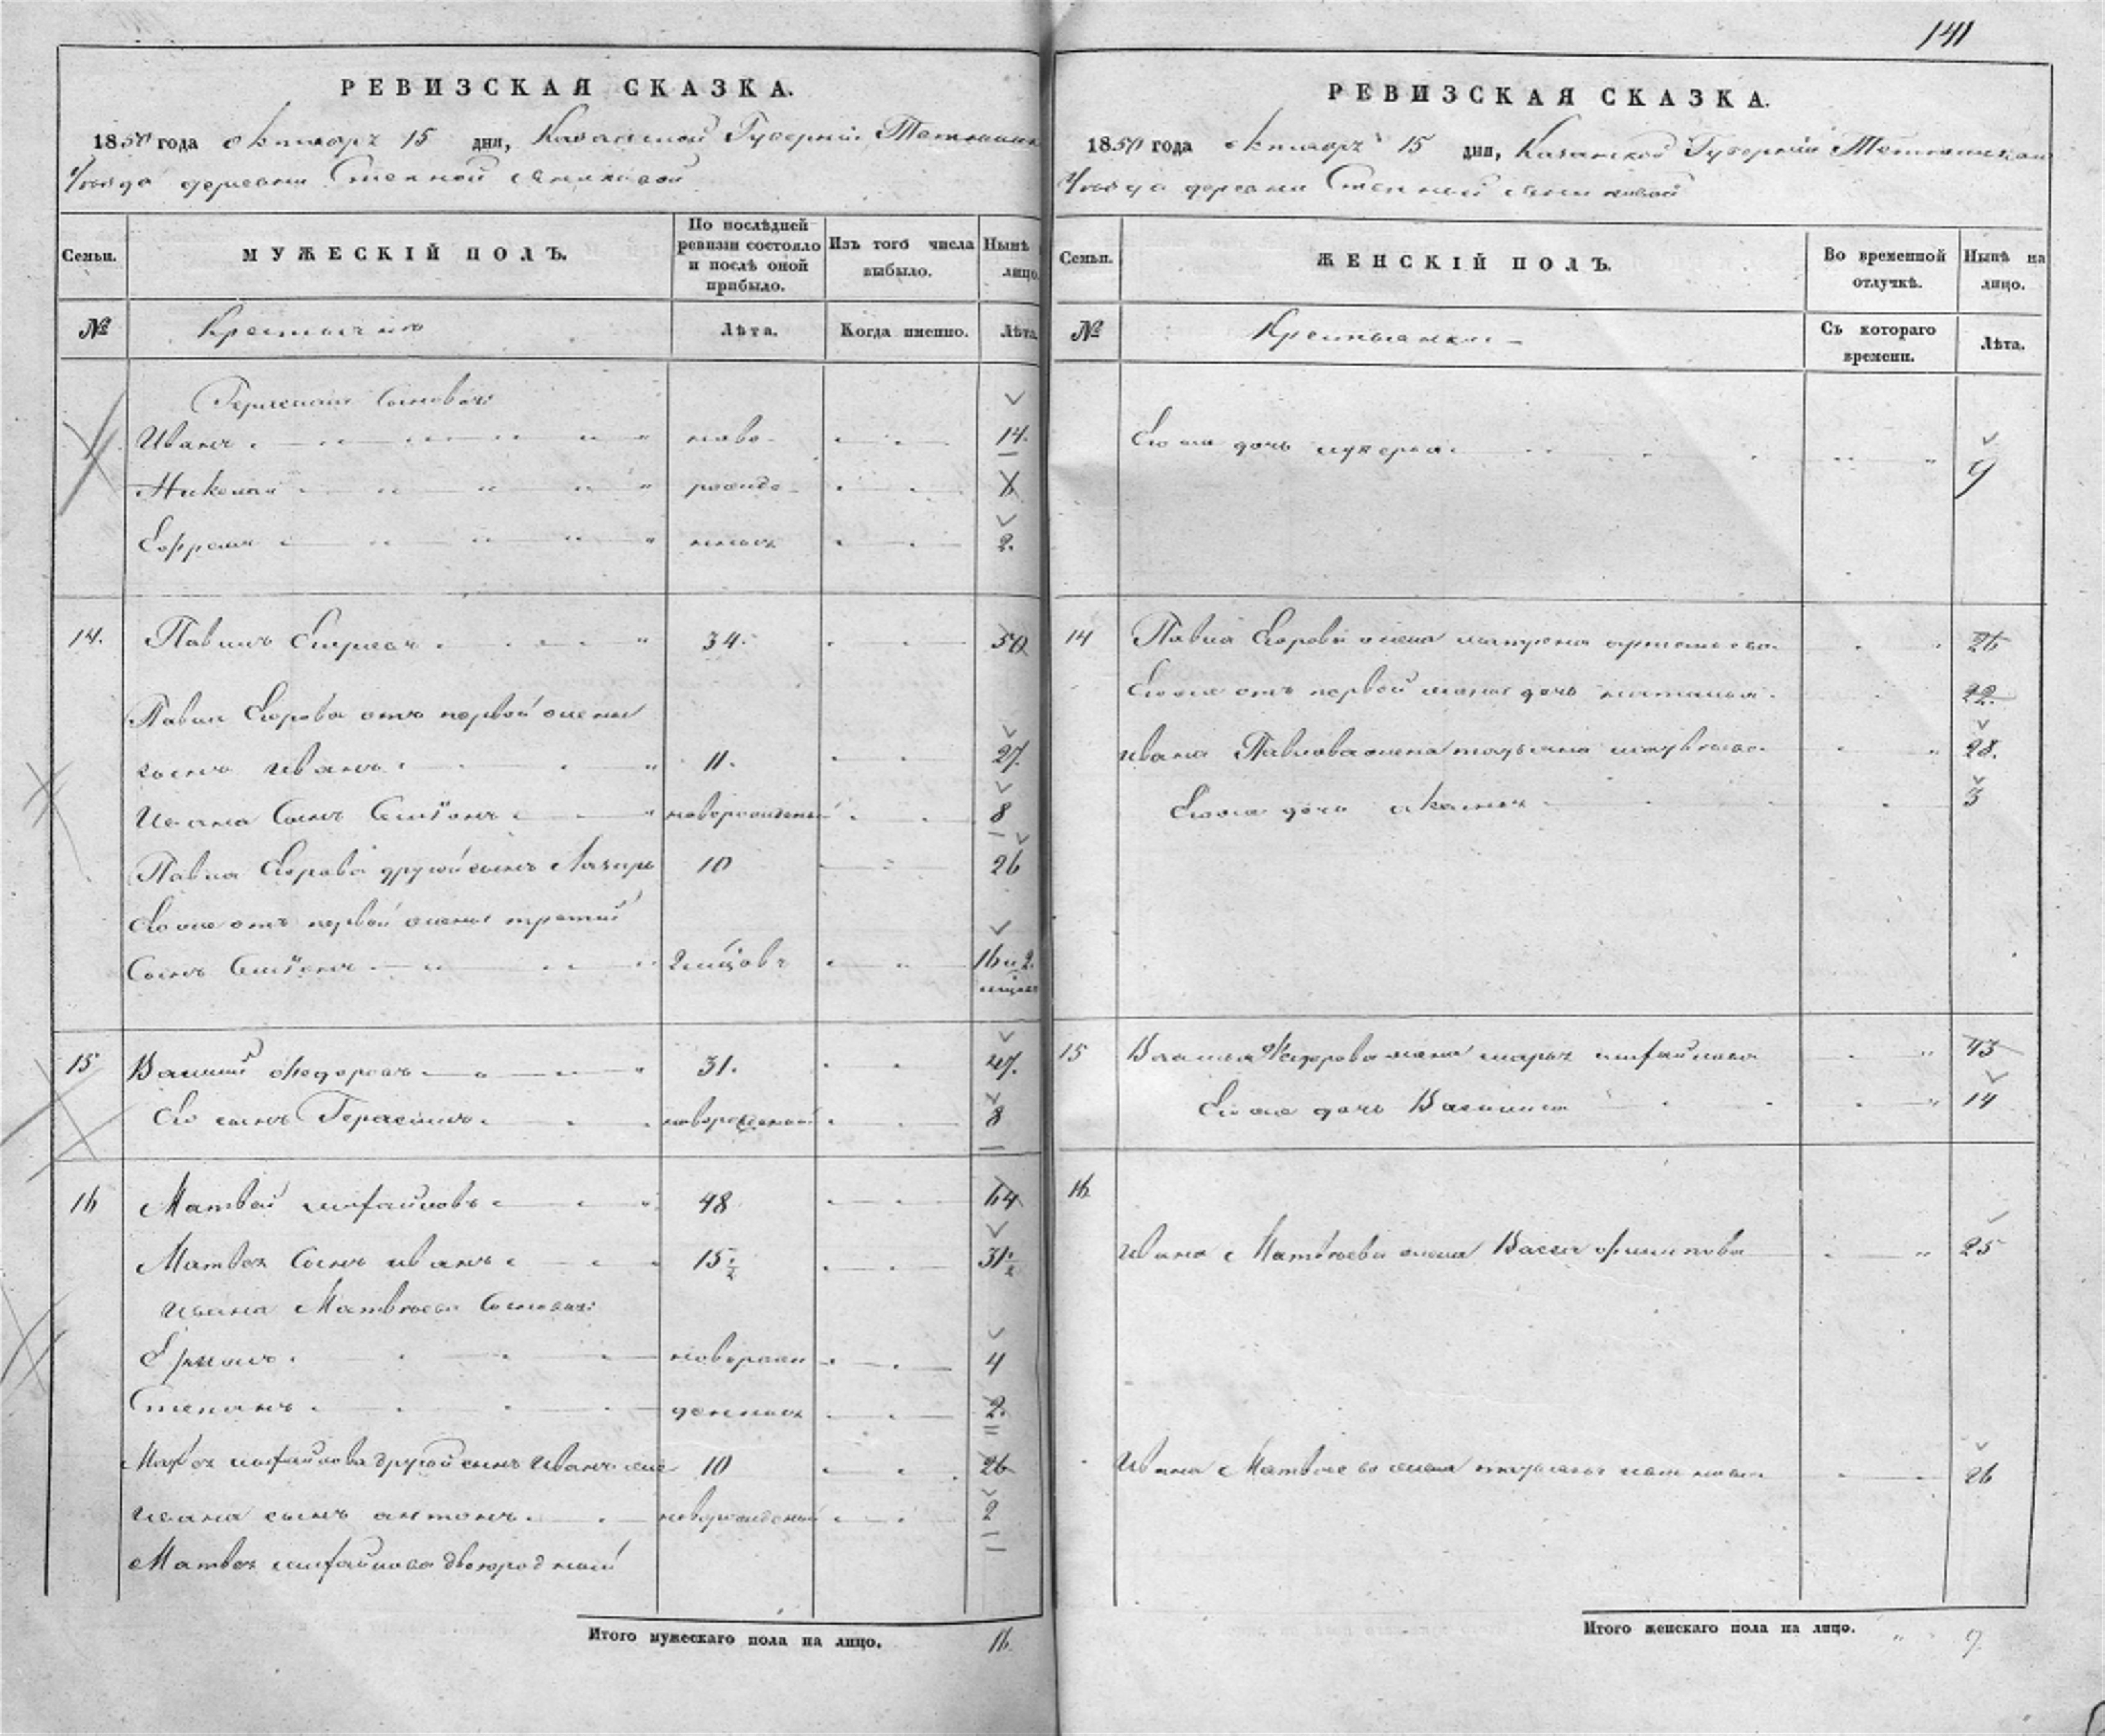 141
РЕВИЗСКАЯ СКАЗКА.
1850 года октября 15 дня, Казанской Губернии
уѣзда деревни Степной
Семьи.
МУЖЕСКІЙ ПОЛЪ.
По послѣдней ревизіи состояло и послѣ оной прибыло.
Изъ того числа выбыло.
Нынѣ лицо.
№
Крестьяне
Лѣта.
Когда именно.
Лѣта.
сыновья:
Иванъ ново- 14.
Николай рожде-
Ефремъ нные 2.
14. Павелъ Егоровъ 34. 50
Павла Егорова отъ первой жены
сынъ Иванъ 11. 27.
Ивана сынъ Семіонъ новорожденый 8
Павла Егорова другой сынъ Лазарь 10 26
Его же отъ первой жены третий
Сынъ Семіонъ 2 мѣцовъ 16 и 2.
мѣцов
15 Василий Федоровъ 31. 47.
Его сынъ Герасимъ новорожденой 8
16 Матвей михайловъ 48 64
Матвея Сынъ иванъ 15 1/2 31 1/2
ивана Матвеева Сыновья:
новорож 4
Степанъ денные 2.
Матвея михайлова другой сынъ Иванъ же 10 26
ивана сынъ антонъ новорожденый 2
Матвея михайлова двоюродный
Итого мужескаго пола на лицо. 16.
РЕВИЗСКАЯ СКАЗКА.
1850 года октября 15 дня, Казанской Губерніи
уѣзда деревни Степной
Семьи.
ЖЕНСКІЙ ПОЛЪ.
Во временной отлучкѣ.
Нынѣ на лицо.
№
Крестьянки
Съ котораго времени.
Лѣта.
Его же дочь лукерья 9
14 Павла Егорова жена матрена 26
Его же отъ первой жены дочь наталья 22.
ивана Павлова жена татьяна 28.
Его же дочь 3
15 Василья Федорова жена марья михайлова 43
Его же дочь Василиса 14
16
ивана Матвеева жена Васса филипова 25
Ивана Матвеева жена татьяна 26
Итого женскаго пола на лицо. 9.